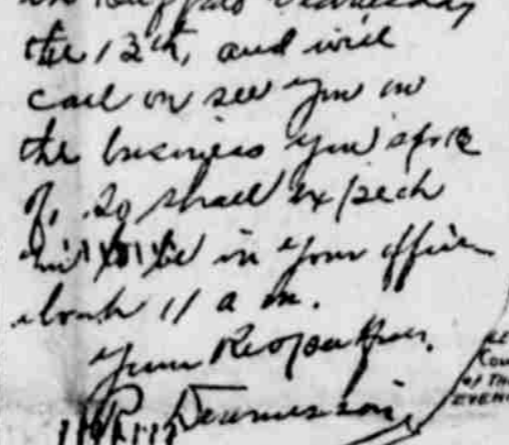 in Buffalo Wednesday
the 12th, and will
call or see you on
the business you spoke
of, so shall expect
to be in your office
about 11 a m.
Yours Resp